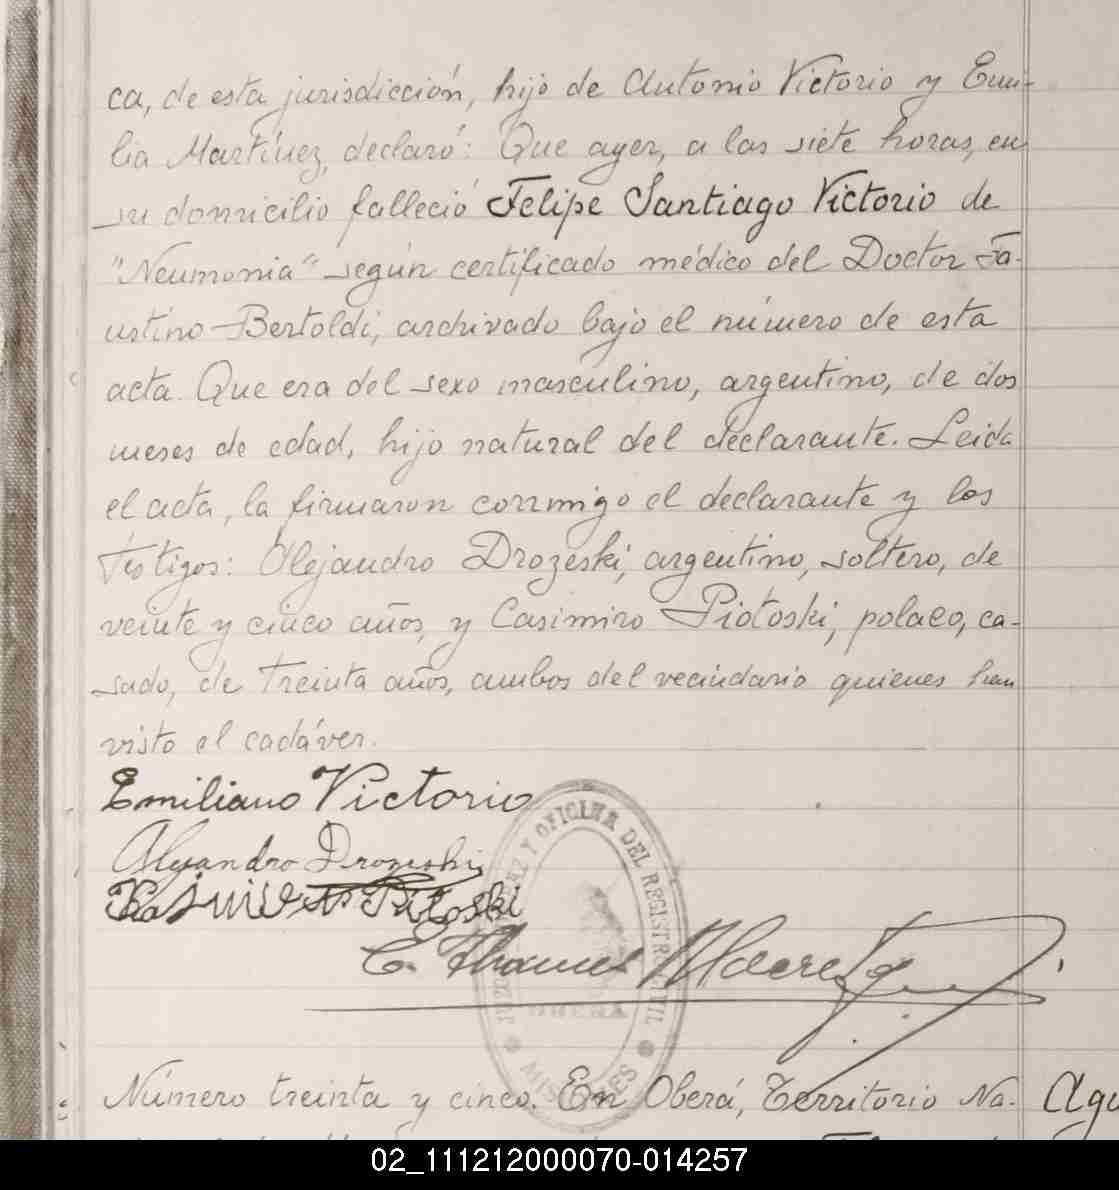 ca, de esta jurisdicción, hijo de Antonio Victorio y Emi-
lia Martínez, declaró: Que ayer, a las siete horas, en
su domicilio falleció Felipe Santiago Victorio de
"Neumonia" según certificado médico del Doctor Fa-
ustino Bertoldi, archivado bajo el número de esta
acta. Que era del sexo masculino, argentino, de dos
meses de edad, hijo natural del declarante. Leida
el acta, la firmaron conmigo el declarante y los
testigos: Alejandro Drozeski, argentino, soltero, de
veinte y cinco años, y Casimiro Piotoski, polaco, ca-
sado, de treinta años, ambos del vecindario quienes han
visto el cadáver.
Emiliano Victorio
Alejandro Drozeski
Pitoski
JUZGADO DE PAZ Y OFICINA DEL REGISTRO CIVIL
OBERA
MISIONES
Número treinta y cinco. En Oberá, Territorio Na- Agu
02_111212000070-014257